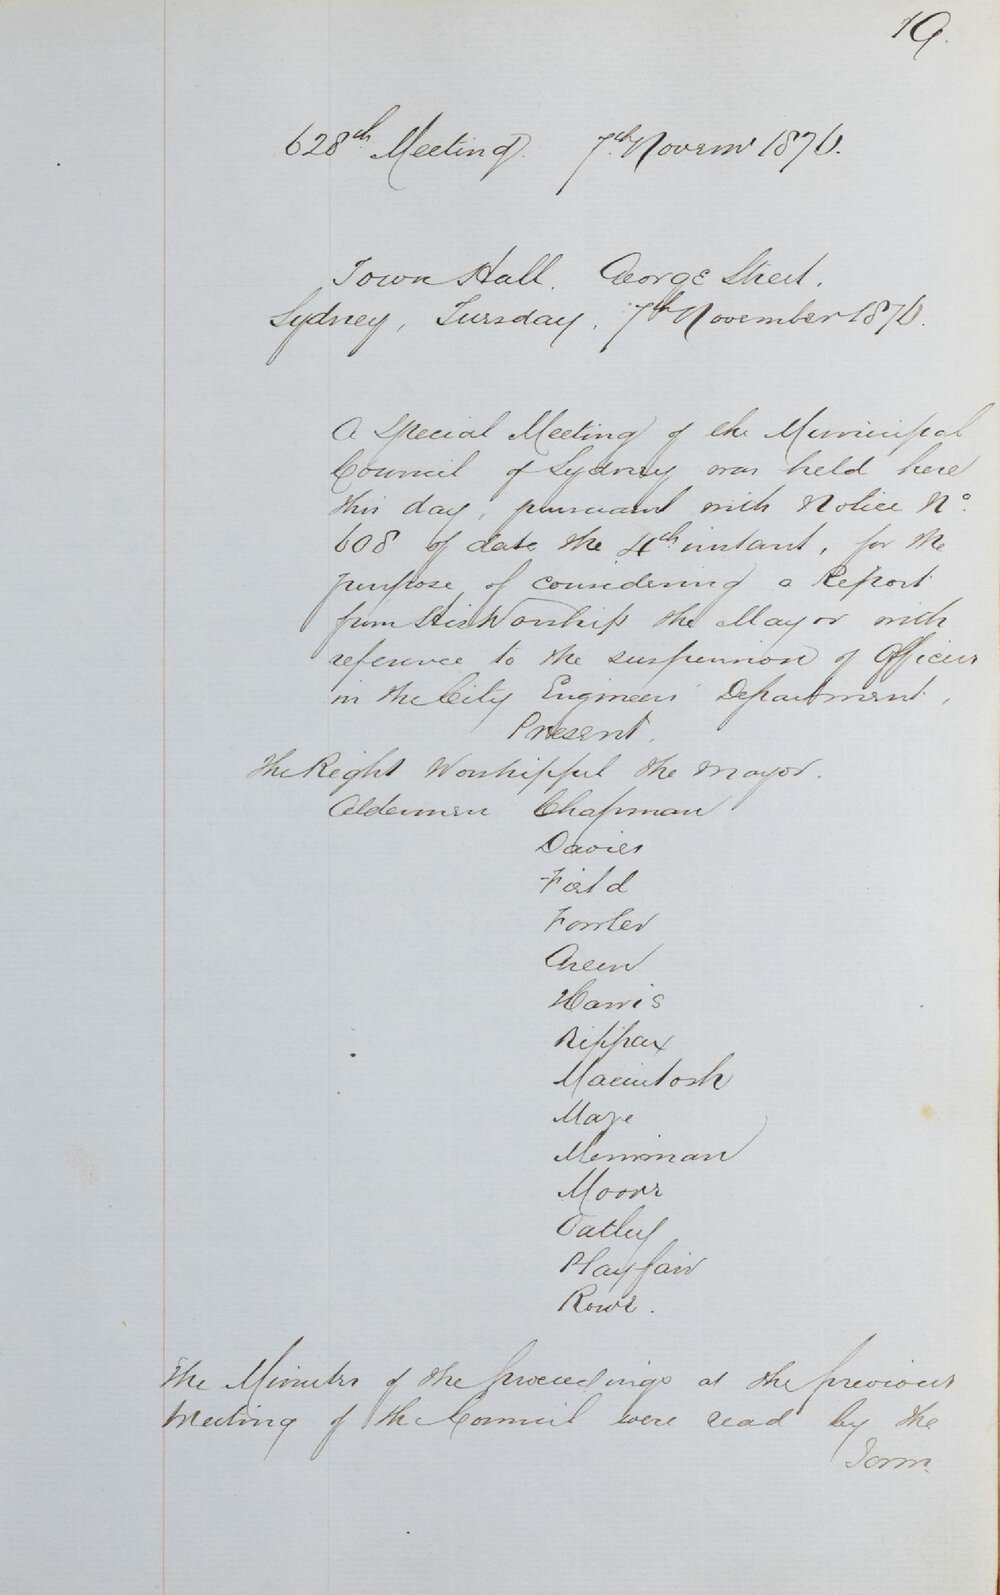 19.
628th Meeting. 7th Novemr 1876.
Town Hall. George Street.
Sydney, Tuesday, 7th November 1876.
A Special Meeting of the Municipal
Council of Sydney was held here
this day, pursuant with Notice No.
608 of date the 4th instant, for the
purpose of considering a Report
from His Worship the Mayor with
reference to the suspension of Officers
in the City Engineers' Department,
Present.
The Right Worshipful the Mayor.
Aldermen Chapman
Davies
Field
Fowler
Green
Harris
Kippax
Macintosh
Maze
Merriman
Moore
Oatley
Playfair
Rowe.
The Minutes of the proceedings at the previous
Meeting of the Council were read by the
Town